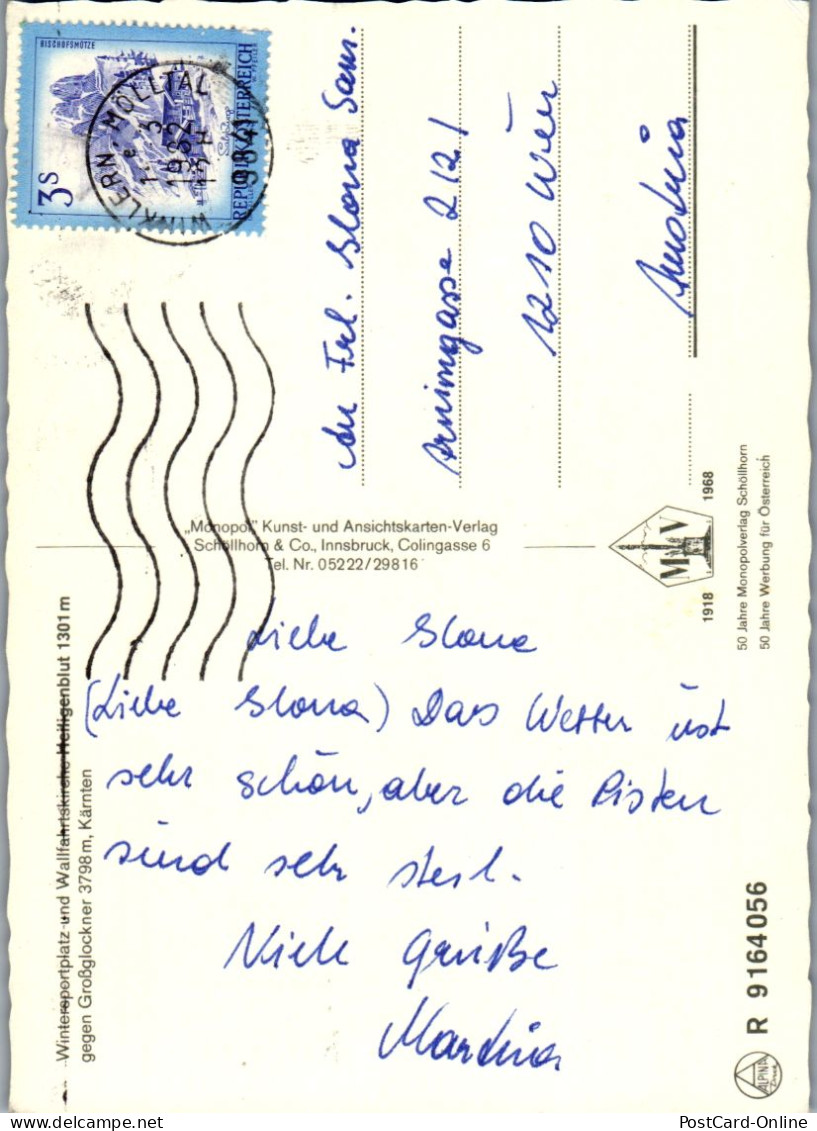 BISCHOFSMÜTZE
3 S
REPUBLIK ÖSTERREICH
WINKLERN-MÖLLTAL
3
1982
9841
An Frl. Ilona Sam.
Arnimgasse 212/
1210 Wien
Austria
„Monopol” Kunst- und Ansichtskarten-Verlag
Schöllhorn & Co., Innsbruck, Colingasse 6
Tel. Nr. 05222/29816
M V
1918 1968
50 Jahre Monopolverlag Schöllhorn
50 Jahre Werbung für Österreich
Wintersportplatz und Wallfahrtskirche Heiligenblut 1301 m
gegen Großglockner 3798 m, Kärnten
Liebe Ilona
(Liebe Ilona) Das Wetter ist
sehr schön, aber die Pisten
sind sehr steil.
Viele Grüße
Martina
ALPINA
R 9164056
PostCard-Online